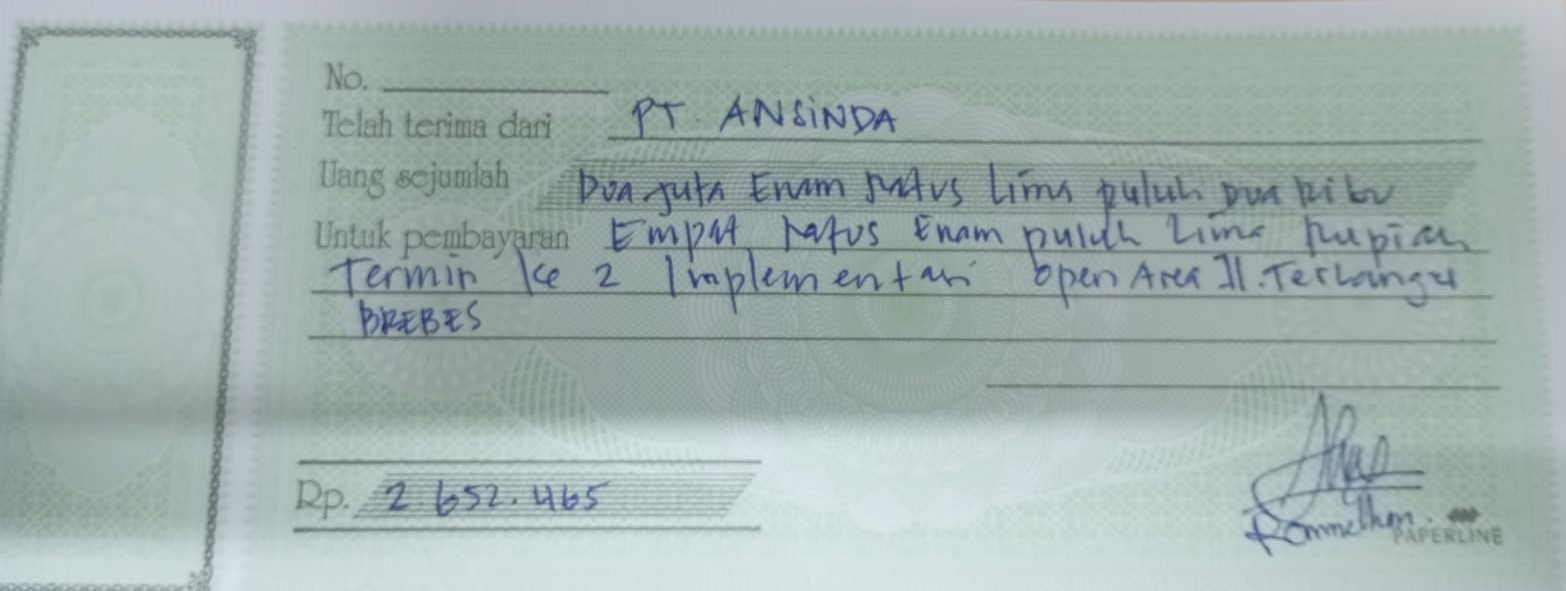 No.
Telah terima dari PT. ANSINDA
Uang sejumlah Dua Juta Enam Ratus Lima puluh Dua Ribu
Untuk pembayaran Empat Ratus Enam puluh Lima Rupiah
Termin ke 2 Implementasi Open Area Jl. Terlangu
BREBES
Rp. 2.652.465
Rommelhon.
PAPERLINE